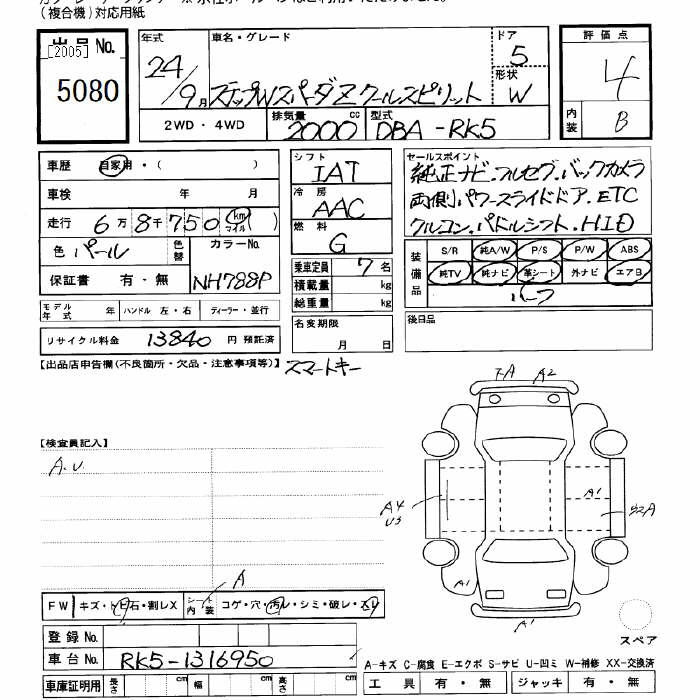 (複合機)対応用紙
出品No.
[2005]
5080
年式
24/9月
車名・グレード
ステップWスパーダZクールスピリット
ドア
5
形状
W
評価点
4
内装
B
2WD・4WD
排気量
2000 cc
型式
DBA-RK5
車歴
自家用・( )
車検 年 月
走行 6万8千750 km マイル
色 パール
色替
カラーNo.
NH788P
保証書 有・無
モデル年式 年 ハンドル 左・右 ディーラー・並行
リサイクル料金 13840 円 預託済
シフト
IAT
冷房
AAC
燃料
G
乗車定員 7名
積載量 kg
総重量 kg
名変期限
月 日
セールスポイント
純正ナビ.フルセグ.バックカメラ
両側パワースライドドア.ETC
クルコン.パドルシフト.HID
装備品
S/R 純A/W P/S P/W ABS
純TV 純ナビ 革シート 外ナビ エアB
ハーフ
後日品
【出品店申告欄(不良箇所・欠品・注意事項等)】
スマートキー
【検査員記入】
A.U.
A A2
A4
U3
A1
S2A
A1
A1
A
FW キズ・トビ石・割レX
シート内装 コゲ・穴・汚レ・シミ・破レ・スレ
登録No.
車台No.
RK5-1316950
車庫証明用 長さ cm 幅 cm 高さ cm
スペア
A-キズ C-腐食 E-エクボ S-サビ U-凹ミ W-補修 XX-交換済
工具 有・無 ジャッキ 有・無